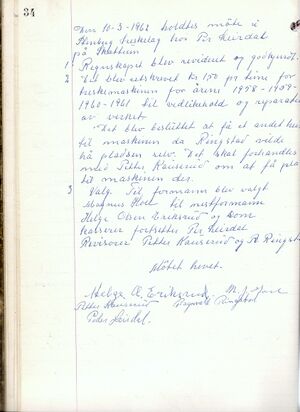 34
Den 10-3-1962 holdtes möte i
treskelag hos Per Leirdal
på
1 Regnskapet blev revidert og godkjendt.
2 Det blev utskrevet kr 1.50 pr time for
treskemaskinen for årene 1958-1959-
1960-1961 til vedlikehold og reparation
av verket.
Det blev besluttet at få et andet hus
til maskinen da Ringstad vilde
ha pladsen selv. Det skal forhandles
med Petter Hauserud om at få plads
til maskinen der.
3 Valg. Til formann blev valgt
Magnus Hoel til nestformann
Helge Olsen Eriksrud og som
kasserer fortsetter Per Leirdal
Revisorer Petter Hauserud og R Ringstad
Mötet hevet.
Helge O. Eriksrud. M. J. Hoel
Petter Hauserud Ragnvald Ringstad
Peder Leirdal.